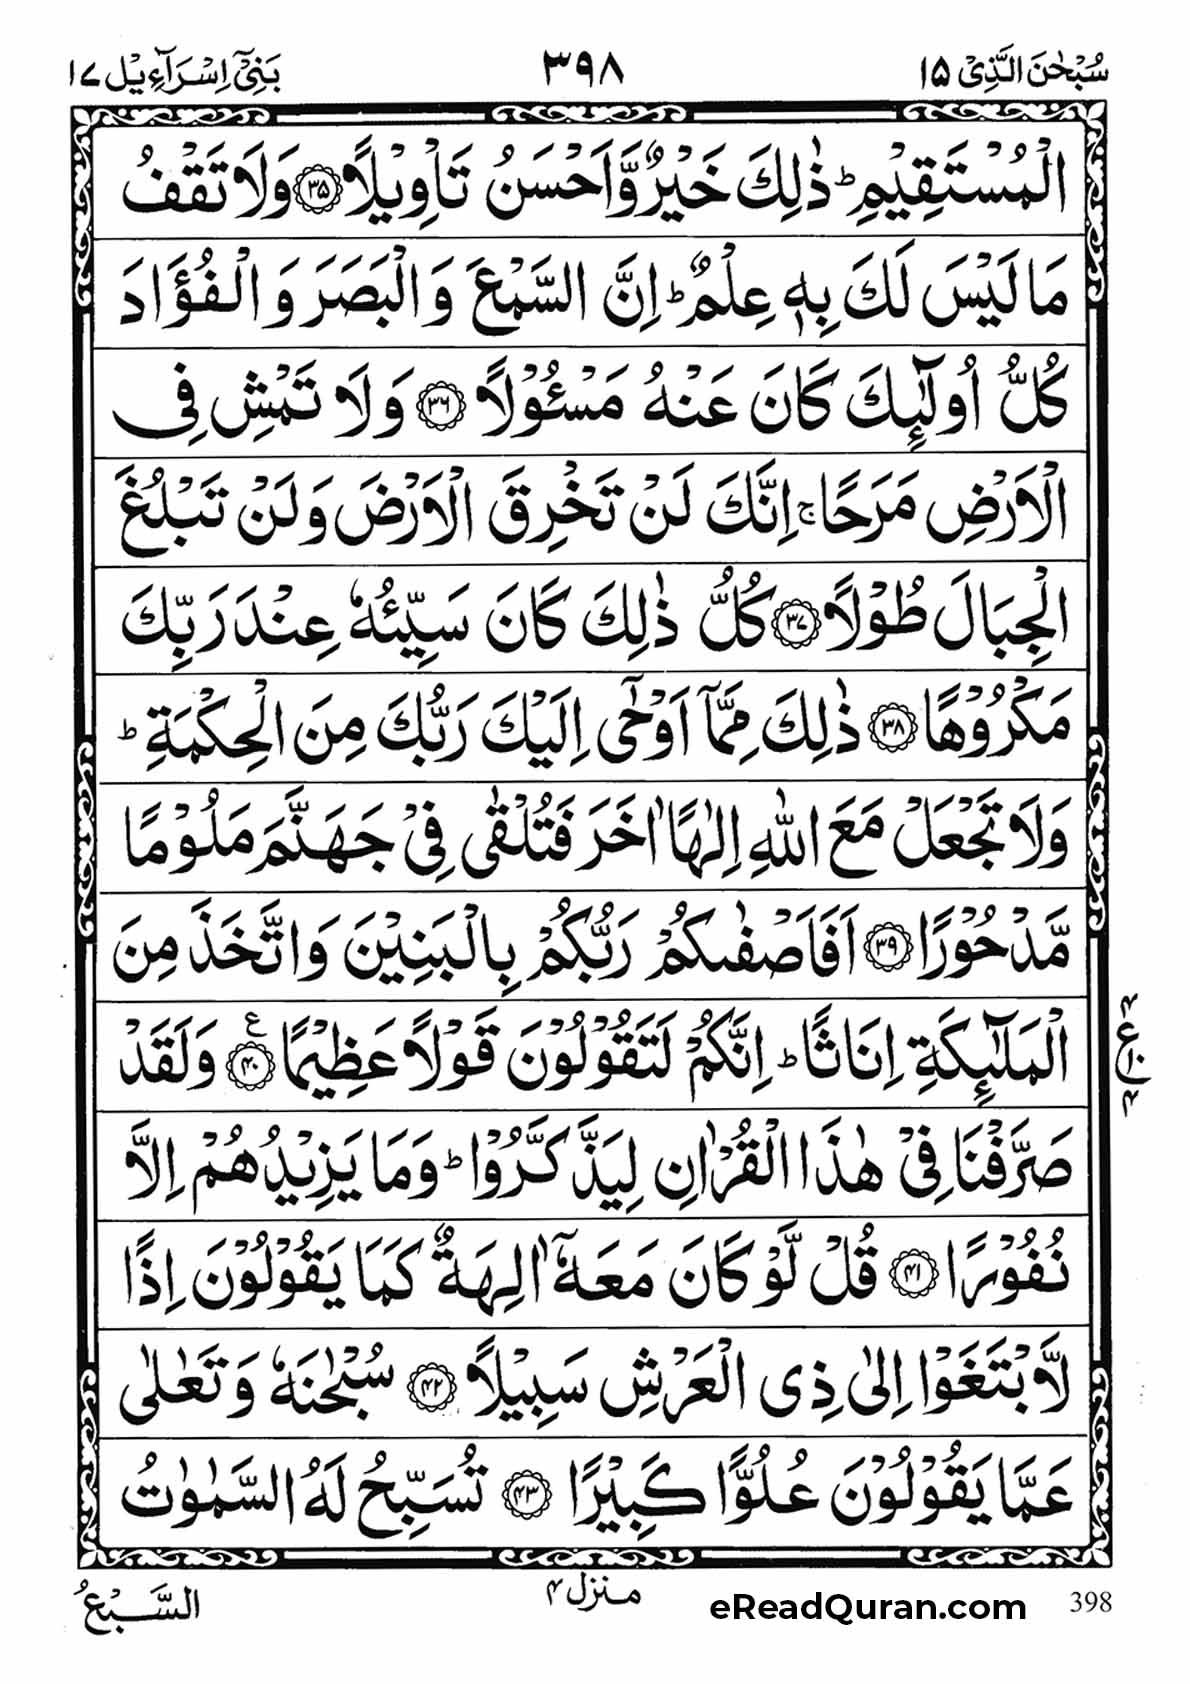 سُبْحٰنَ الَّذِیْۤ ۱۵ ۳۹۸ بَنِیْۤ اِسْرَآءِیْل ۱۷
الْمُسْتَقِیْمِ ؕ ذٰلِكَ خَیْرٌ وَّاَحْسَنُ تَاْوِیْلًا ۝۳۵ وَلَا تَقْفُ
مَا لَیْسَ لَكَ بِهٖ عِلْمٌ ؕ اِنَّ السَّمْعَ وَالْبَصَرَ وَالْفُؤَادَ
كُلُّ اُولٰٓىِٕكَ كَانَ عَنْهُ مَسْـُٔوْلًا ۝۳۶ وَلَا تَمْشِ فِی
الْاَرْضِ مَرَحًا ۚ اِنَّكَ لَنْ تَخْرِقَ الْاَرْضَ وَلَنْ تَبْلُغَ
الْجِبَالَ طُوْلًا ۝۳۷ كُلُّ ذٰلِكَ كَانَ سَیِّئُهٗ عِنْدَ رَبِّكَ
مَكْرُوْهًا ۝۳۸ ذٰلِكَ مِمَّاۤ اَوْحٰۤی اِلَیْكَ رَبُّكَ مِنَ الْحِكْمَةِ ؕ
وَلَا تَجْعَلْ مَعَ اللّٰهِ اِلٰهًا اٰخَرَ فَتُلْقٰی فِیْ جَهَنَّمَ مَلُوْمًا
مَّدْحُوْرًا ۝۳۹ اَفَاَصْفٰىكُمْ رَبُّكُمْ بِالْبَنِیْنَ وَاتَّخَذَ مِنَ
الْمَلٰٓىِٕكَةِ اِنَاثًا ؕ اِنَّكُمْ لَتَقُوْلُوْنَ قَوْلًا عَظِیْمًا ۝۴۰ ع وَلَقَدْ
صَرَّفْنَا فِیْ هٰذَا الْقُرْاٰنِ لِیَذَّكَّرُوْا ؕ وَمَا یَزِیْدُهُمْ اِلَّا
نُفُوْرًا ۝۴۱ قُلْ لَّوْ كَانَ مَعَهٗۤ اٰلِهَةٌ كَمَا یَقُوْلُوْنَ اِذًا
لَّابْتَغَوْا اِلٰی ذِی الْعَرْشِ سَبِیْلًا ۝۴۲ سُبْحٰنَهٗ وَتَعٰلٰی
عَمَّا یَقُوْلُوْنَ عُلُوًّا كَبِیْرًا ۝۴۳ تُسَبِّحُ لَهُ السَّمٰوٰتُ
السَّبْعُ منزل ۴ eReadQuran.com 398